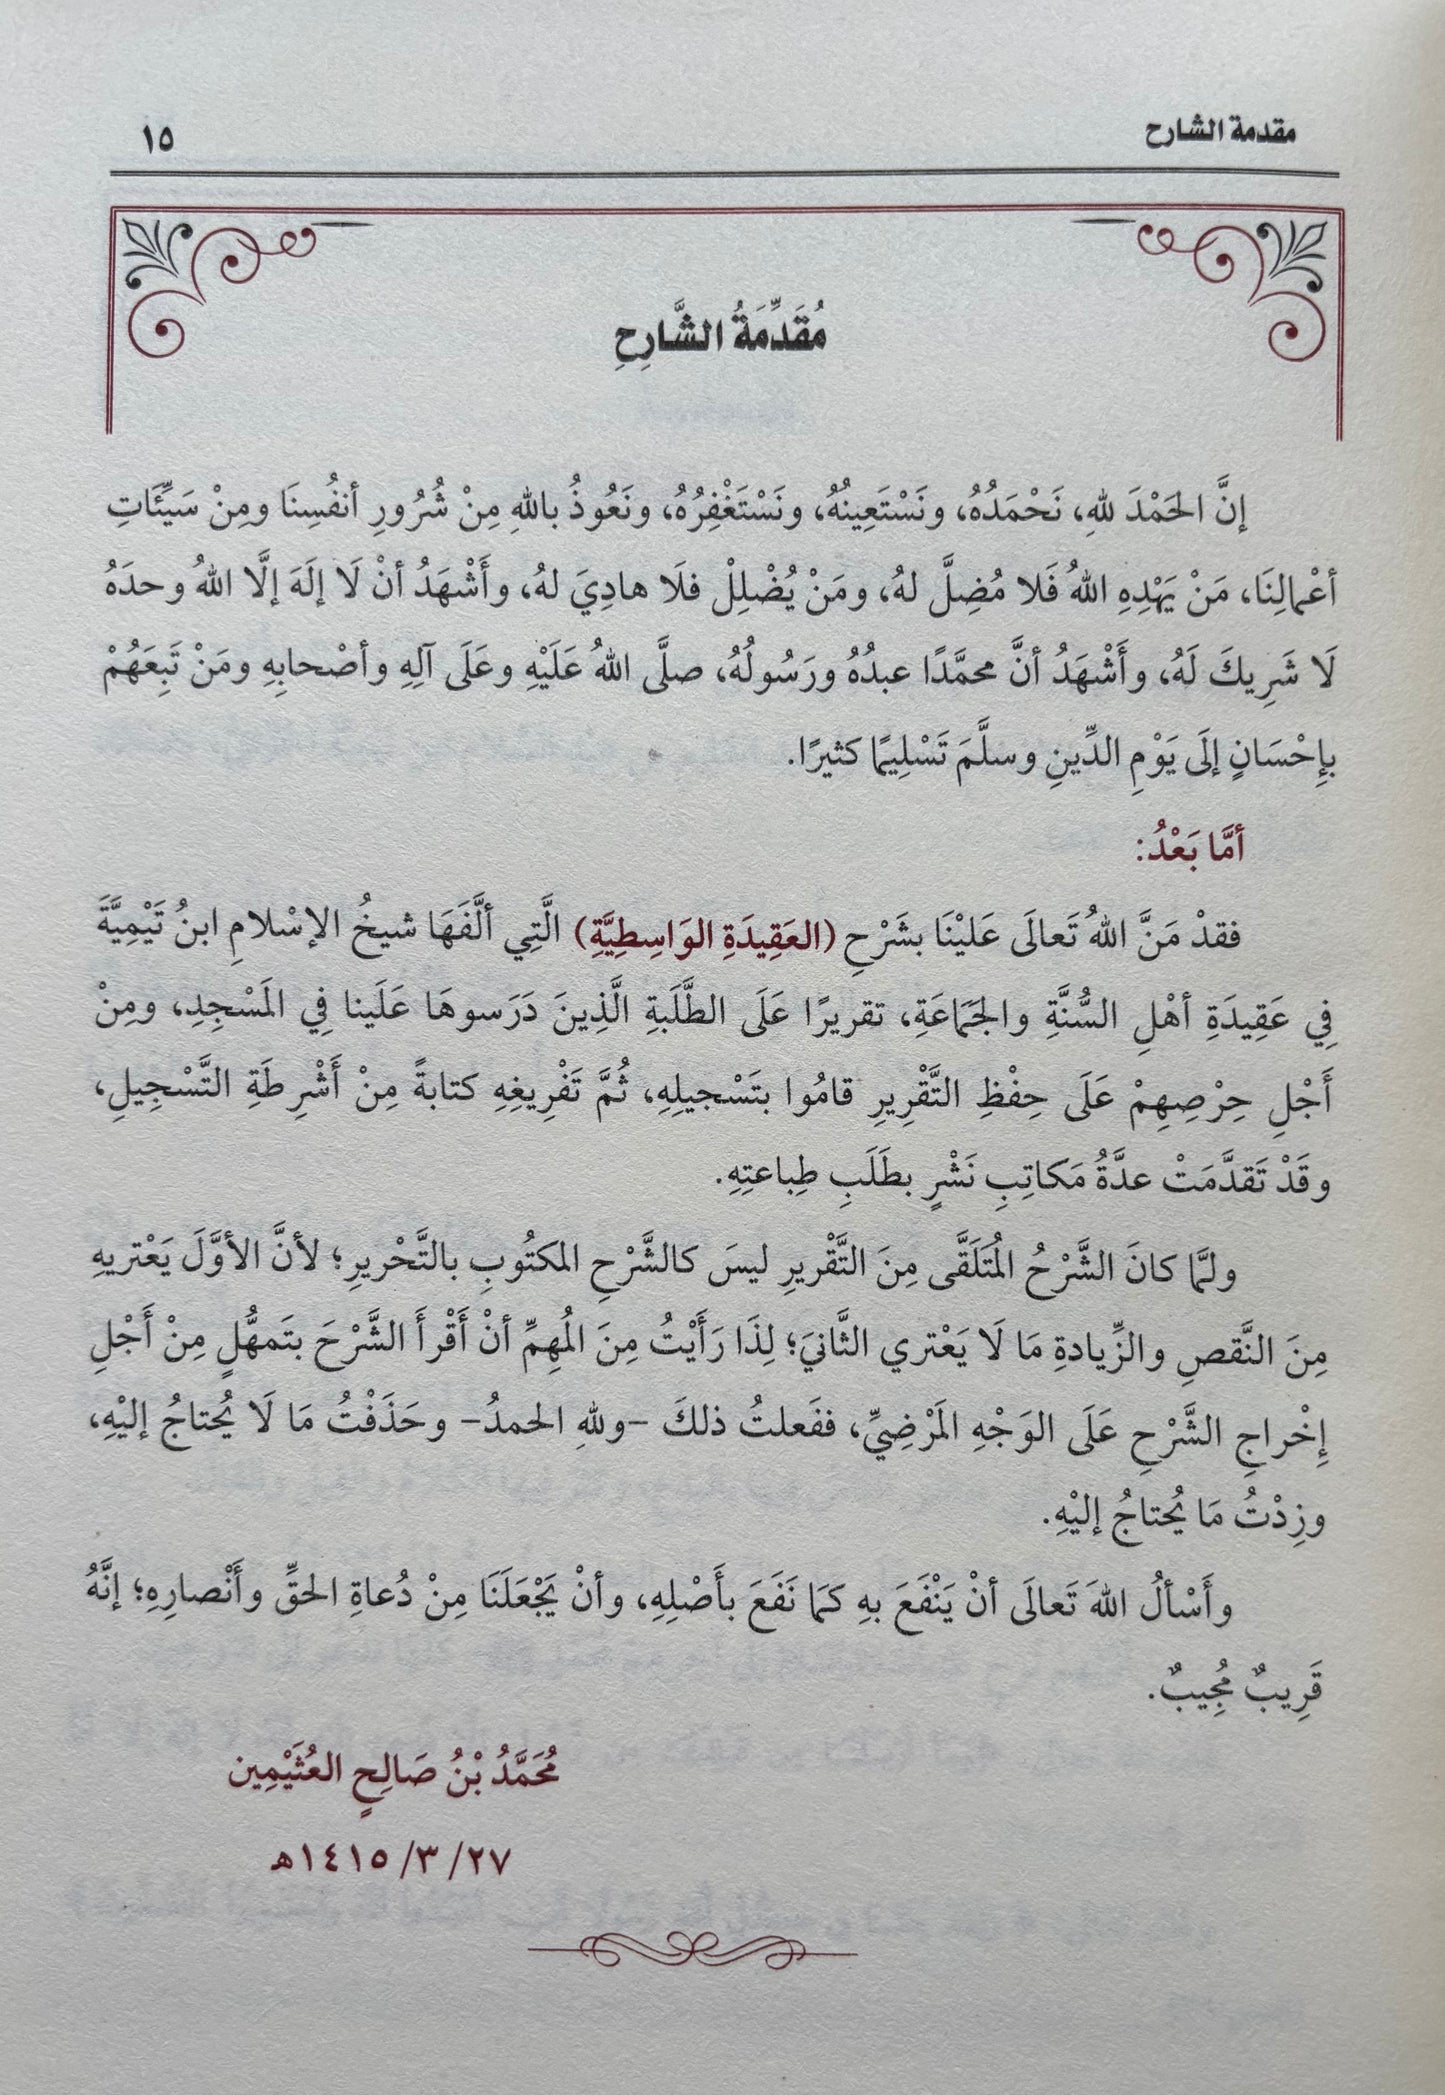 مقدمة الشارح
١٥
مُقَدِّمَةُ الشَّارِحِ
إنَّ الحَمْدَ للهِ، نَحْمَدُهُ، ونَسْتَعِينُهُ، ونَسْتَغْفِرُهُ، ونَعُوذُ باللهِ مِنْ شُرُورِ أنفُسِنَا ومِنْ سَيِّئَاتِ
أعْمالِنَا، مَنْ يَهْدِهِ اللهُ فَلا مُضِلَّ لهُ، ومَنْ يُضْلِلْ فلَا هادِيَ لهُ، وأَشْهَدُ أنْ لَا إلَهَ إلَّا اللهُ وحدَهُ
لَا شَرِيكَ لَهُ، وأَشْهَدُ أنَّ محمَّدًا عبدُهُ ورَسُولُهُ، صلَّى اللهُ عَلَيْهِ وعَلَى آلِهِ وأصْحابِهِ ومَنْ تَبِعَهُمْ
بإِحْسَانٍ إلَى يَوْمِ الدِّينِ وسلَّمَ تَسْلِيمًا كثيرًا.
أمَّا بَعْدُ:
فقدْ مَنَّ اللهُ تَعالَى عَليْنَا بشَرْحِ (العَقِيدَةِ الوَاسِطِيَّةِ) الَّتِي ألَّفَهَا شيخُ الإسْلامِ ابنُ تَيْمِيَّةَ
فِي عَقِيدَةِ أهْلِ السُّنَّةِ والجَمَاعَةِ، تقريرًا عَلَى الطَّلَبةِ الَّذِينَ دَرَسوهَا عَلَينا فِي المَسْجِدِ، ومِنْ
أَجْلِ حِرْصِهِمْ عَلَى حِفْظِ التَّقْرِيرِ قامُوا بتَسْجيلِهِ، ثُمَّ تَفْرِيغِهِ كتابةً مِنْ أَشْرِطَةِ التَّسْجِيلِ،
وقَدْ تَقدَّمَتْ عدَّةُ مَكاتِبِ نَشْرٍ بطَلَبِ طِباعتِهِ.
ولمَّا كانَ الشَّرْحُ المُتَلَقَّى مِنَ التَّقْريرِ ليسَ كالشَّرْحِ المكتُوبِ بالتَّحْريرِ؛ لأنَّ الأوَّلَ يَعْتريهِ
مِنَ النَّقصِ والزِّيادةِ مَا لَا يَعْتري الثَّانيَ؛ لِذَا رَأَيْتُ مِنَ المُهِمِّ أنْ أَقْرأَ الشَّرْحَ بتَمهُّلٍ مِنْ أَجْلِ
إخْراجِ الشَّرْحِ عَلَى الوَجْهِ المَرْضِيِّ، ففَعلتُ ذلكَ -وللهِ الحمدُ- وحَذَفْتُ مَا لَا يُحتاجُ إليْهِ،
وزِدْتُ مَا يُحتاجُ إليْهِ.
وأَسْألُ اللهَ تَعالَى أنْ يَنْفَعَ بهِ كمَا نَفَعَ بأَصْلِهِ، وأنْ يَجْعَلَنَا مِنْ دُعاةِ الحقِّ وأَنْصارِهِ؛ إنَّهُ
قَرِيبٌ مُجِيبٌ.
مُحَمَّدُ بْنُ صَالِحٍ العُثَيْمِين
٢٧/ ٣/ ١٤١٥هـ